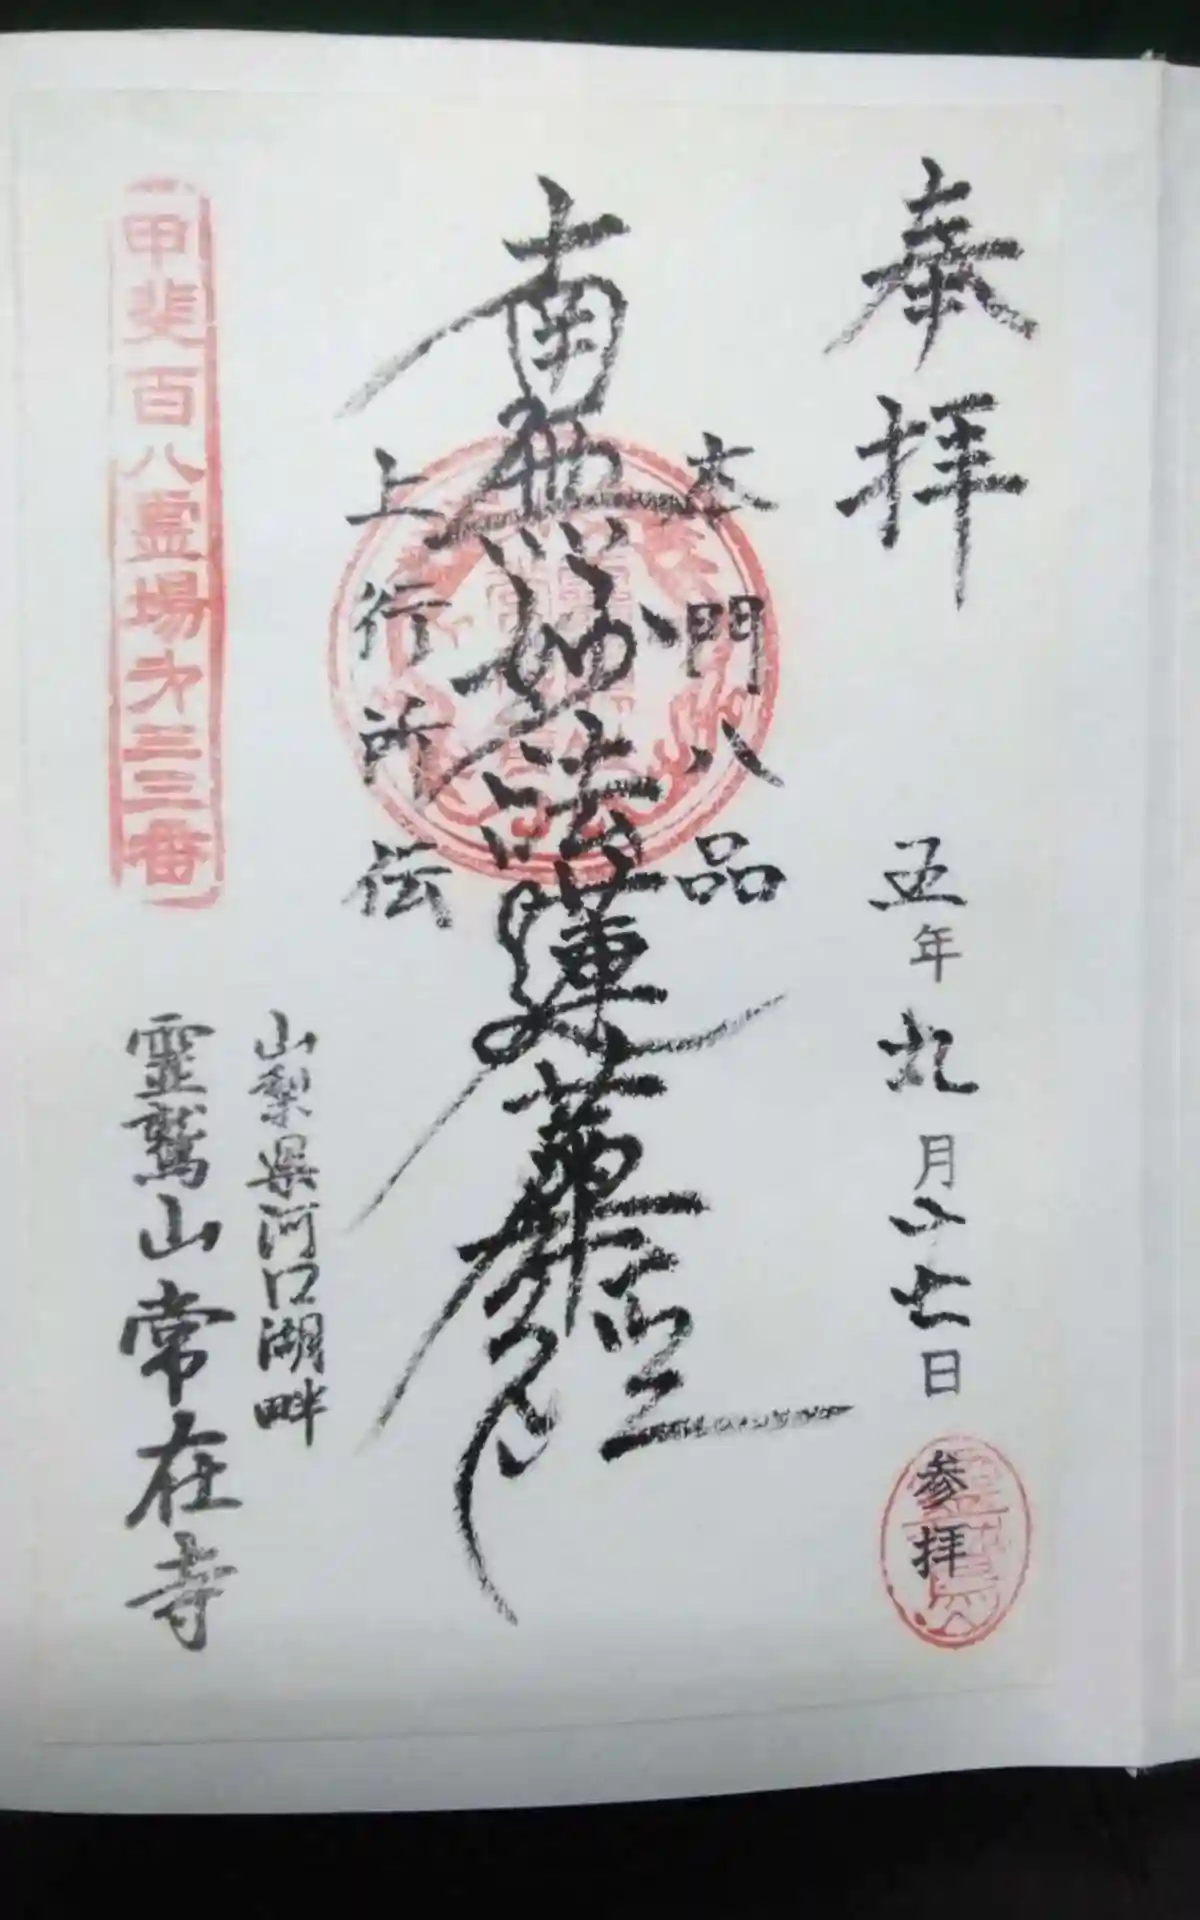 奉拝
五年九月十七日
参拝
本門八品
南無妙法蓮華経
上行所伝
山梨県河口湖畔
霊鷲山常在寺
甲斐百八霊場第三三番